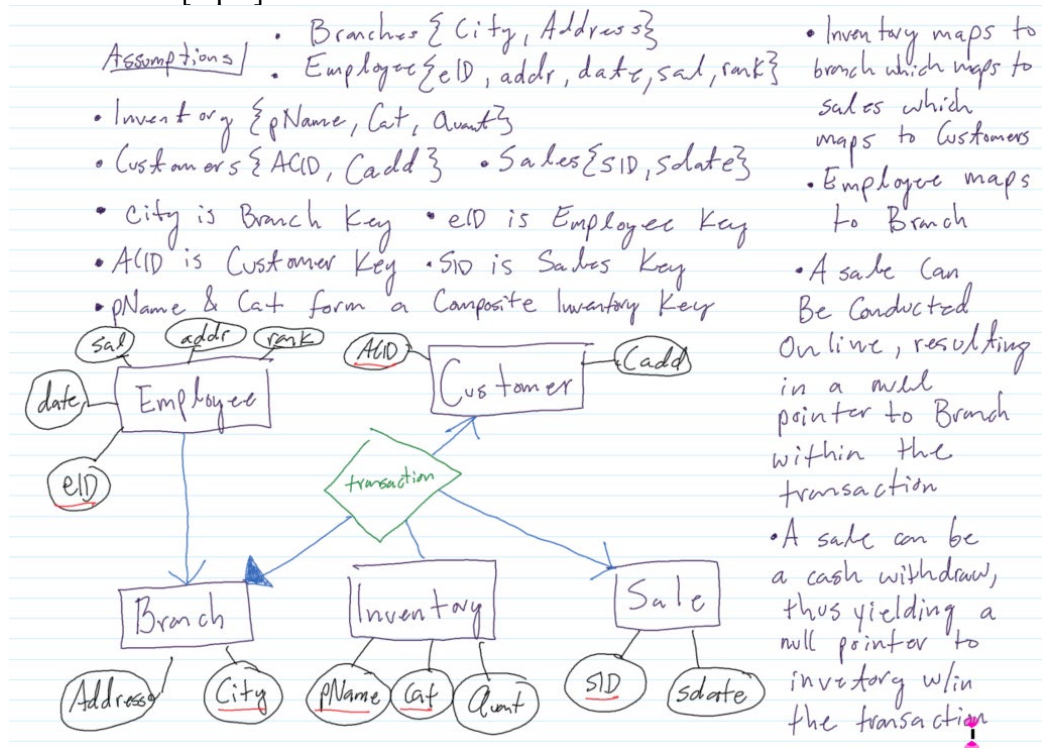 Assumptions
• Branches { City, Address }
• Employee { eID, addr, date, sal, rank }
• Inventory { pName, Cat, Quant }
• Customers { ACID, Cadd }
• Sales { SID, sdate }
• City is Branch Key
• eID is Employee Key
• ACID is Customer Key
• SID is Sales Key
• pName & Cat form a Composite Inventory Key
• Inventory maps to
branch which maps to
sales which
maps to Customers
• Employee maps
to Branch
• A sale Can
Be Conducted
Online, resulting
in a null
pointer to Branch
within the
transaction
• A sale can be
a cash withdraw,
thus yielding a
null pointer to
invetory w/in
the transaction
sal
addr
rank
date
Employee
eID
ACID
Customer
Cadd
transaction
Branch
Inventory
Sale
Address
City
pName
Cat
Quant
SID
sdate